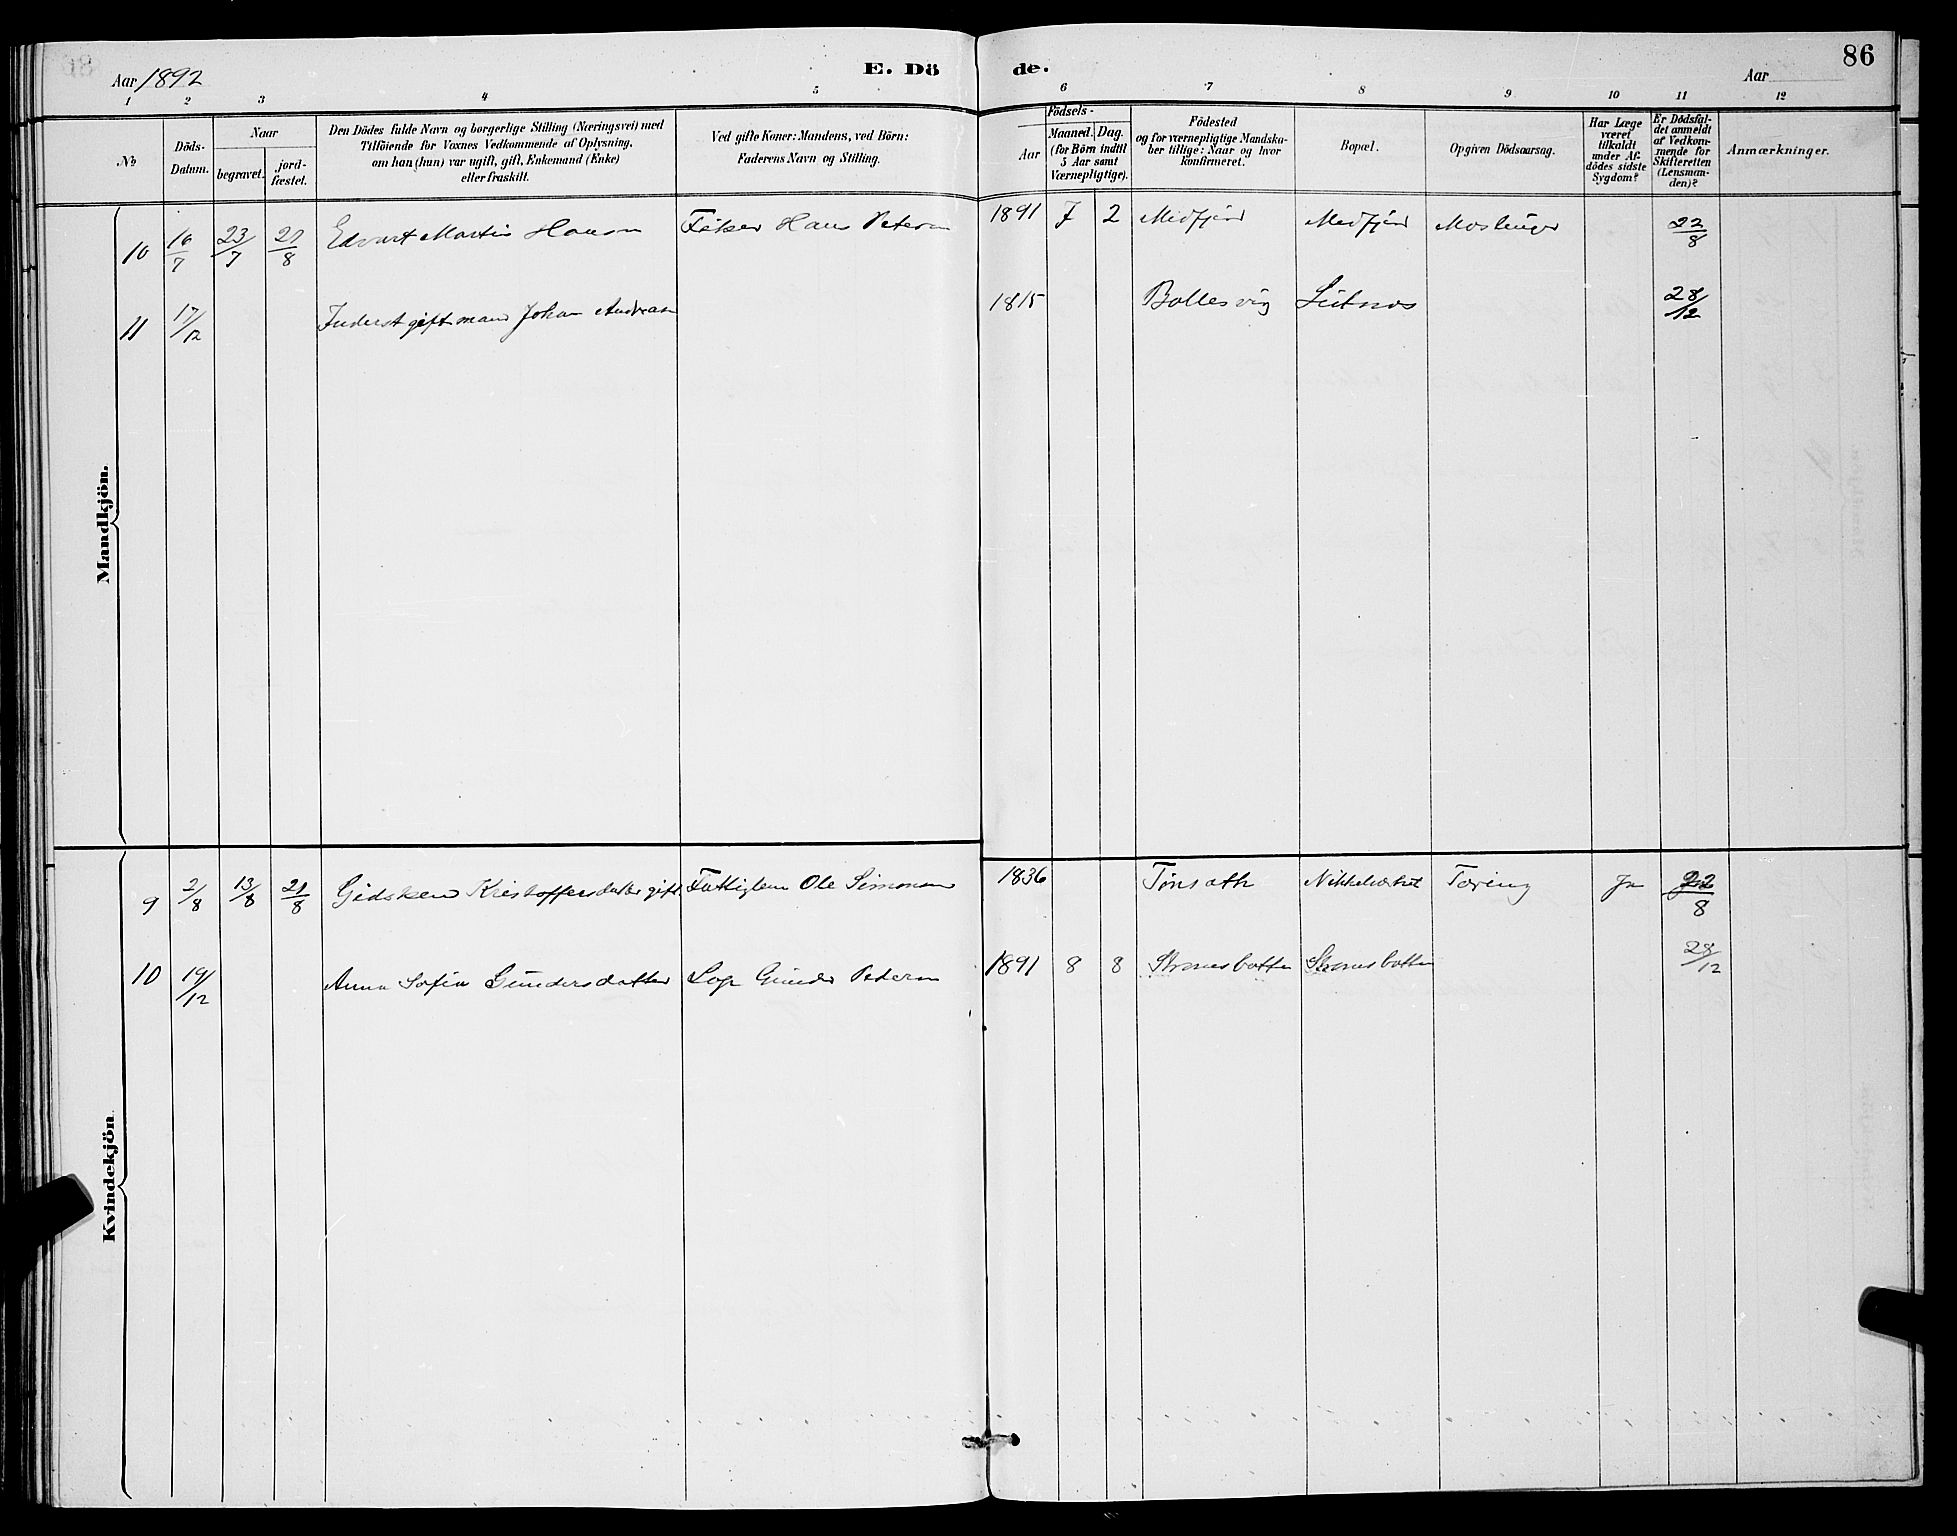 86
Aar 1892
E. Dö de.
Aar
1 2 3 4 5 6 7 8 9 10 11 12
No
Döds-Datum.
Naar
begravet.
jord-fæstet.
Den Dödes fulde Navn og borgerlige Stilling (Næringsvei) med
Tilföiende for Voxnes Vedkommende af Oplysning,
om han (hun) var ugift, gift, Enkemand (Enke)
eller fraskilt.
Ved gifte Koner: Mandens, ved Börn:
Faderens Navn og Stilling.
Födsels-
Aar
Maaned. Dag.
(for Börn indtil
5 Aar samt
Værnepligtige).
Födested
og for værnepligtige Mandska-
ber tillige: Naar og hvor
konfirmeret.
Bopæl.
Opgiven Dödsaarsag.
Har Læge
været
tilkaldt
under Af-
dödes sidste
Sygdom?
Er Dödsfal-
det anmeldt
af Vedkom-
mende for
Skifteretten
(Lensman-
den)?
Anmærkninger.
Mandkjön.
10 16/7 23/7 21/8 Edvart Martin Hansen Fisker Hans Petersen 1891 7 2 Medfjord Medfjord 22/8
11 17/12 Inderst gift mand Johan Andreasen 1815 Ballesvig 28/12
Kvindekjön
9 2/8 13/8 21/8 Gidsken Kristoffersdatter gift Fattiglem Ole Simonsen 1836 Nikkelverket Tæring Ja 22/8
10 19/12 Anna Sofia Gundersdatter Gunder Petersen 1891 8 8 Strømsbotten Strømsbotten 28/12